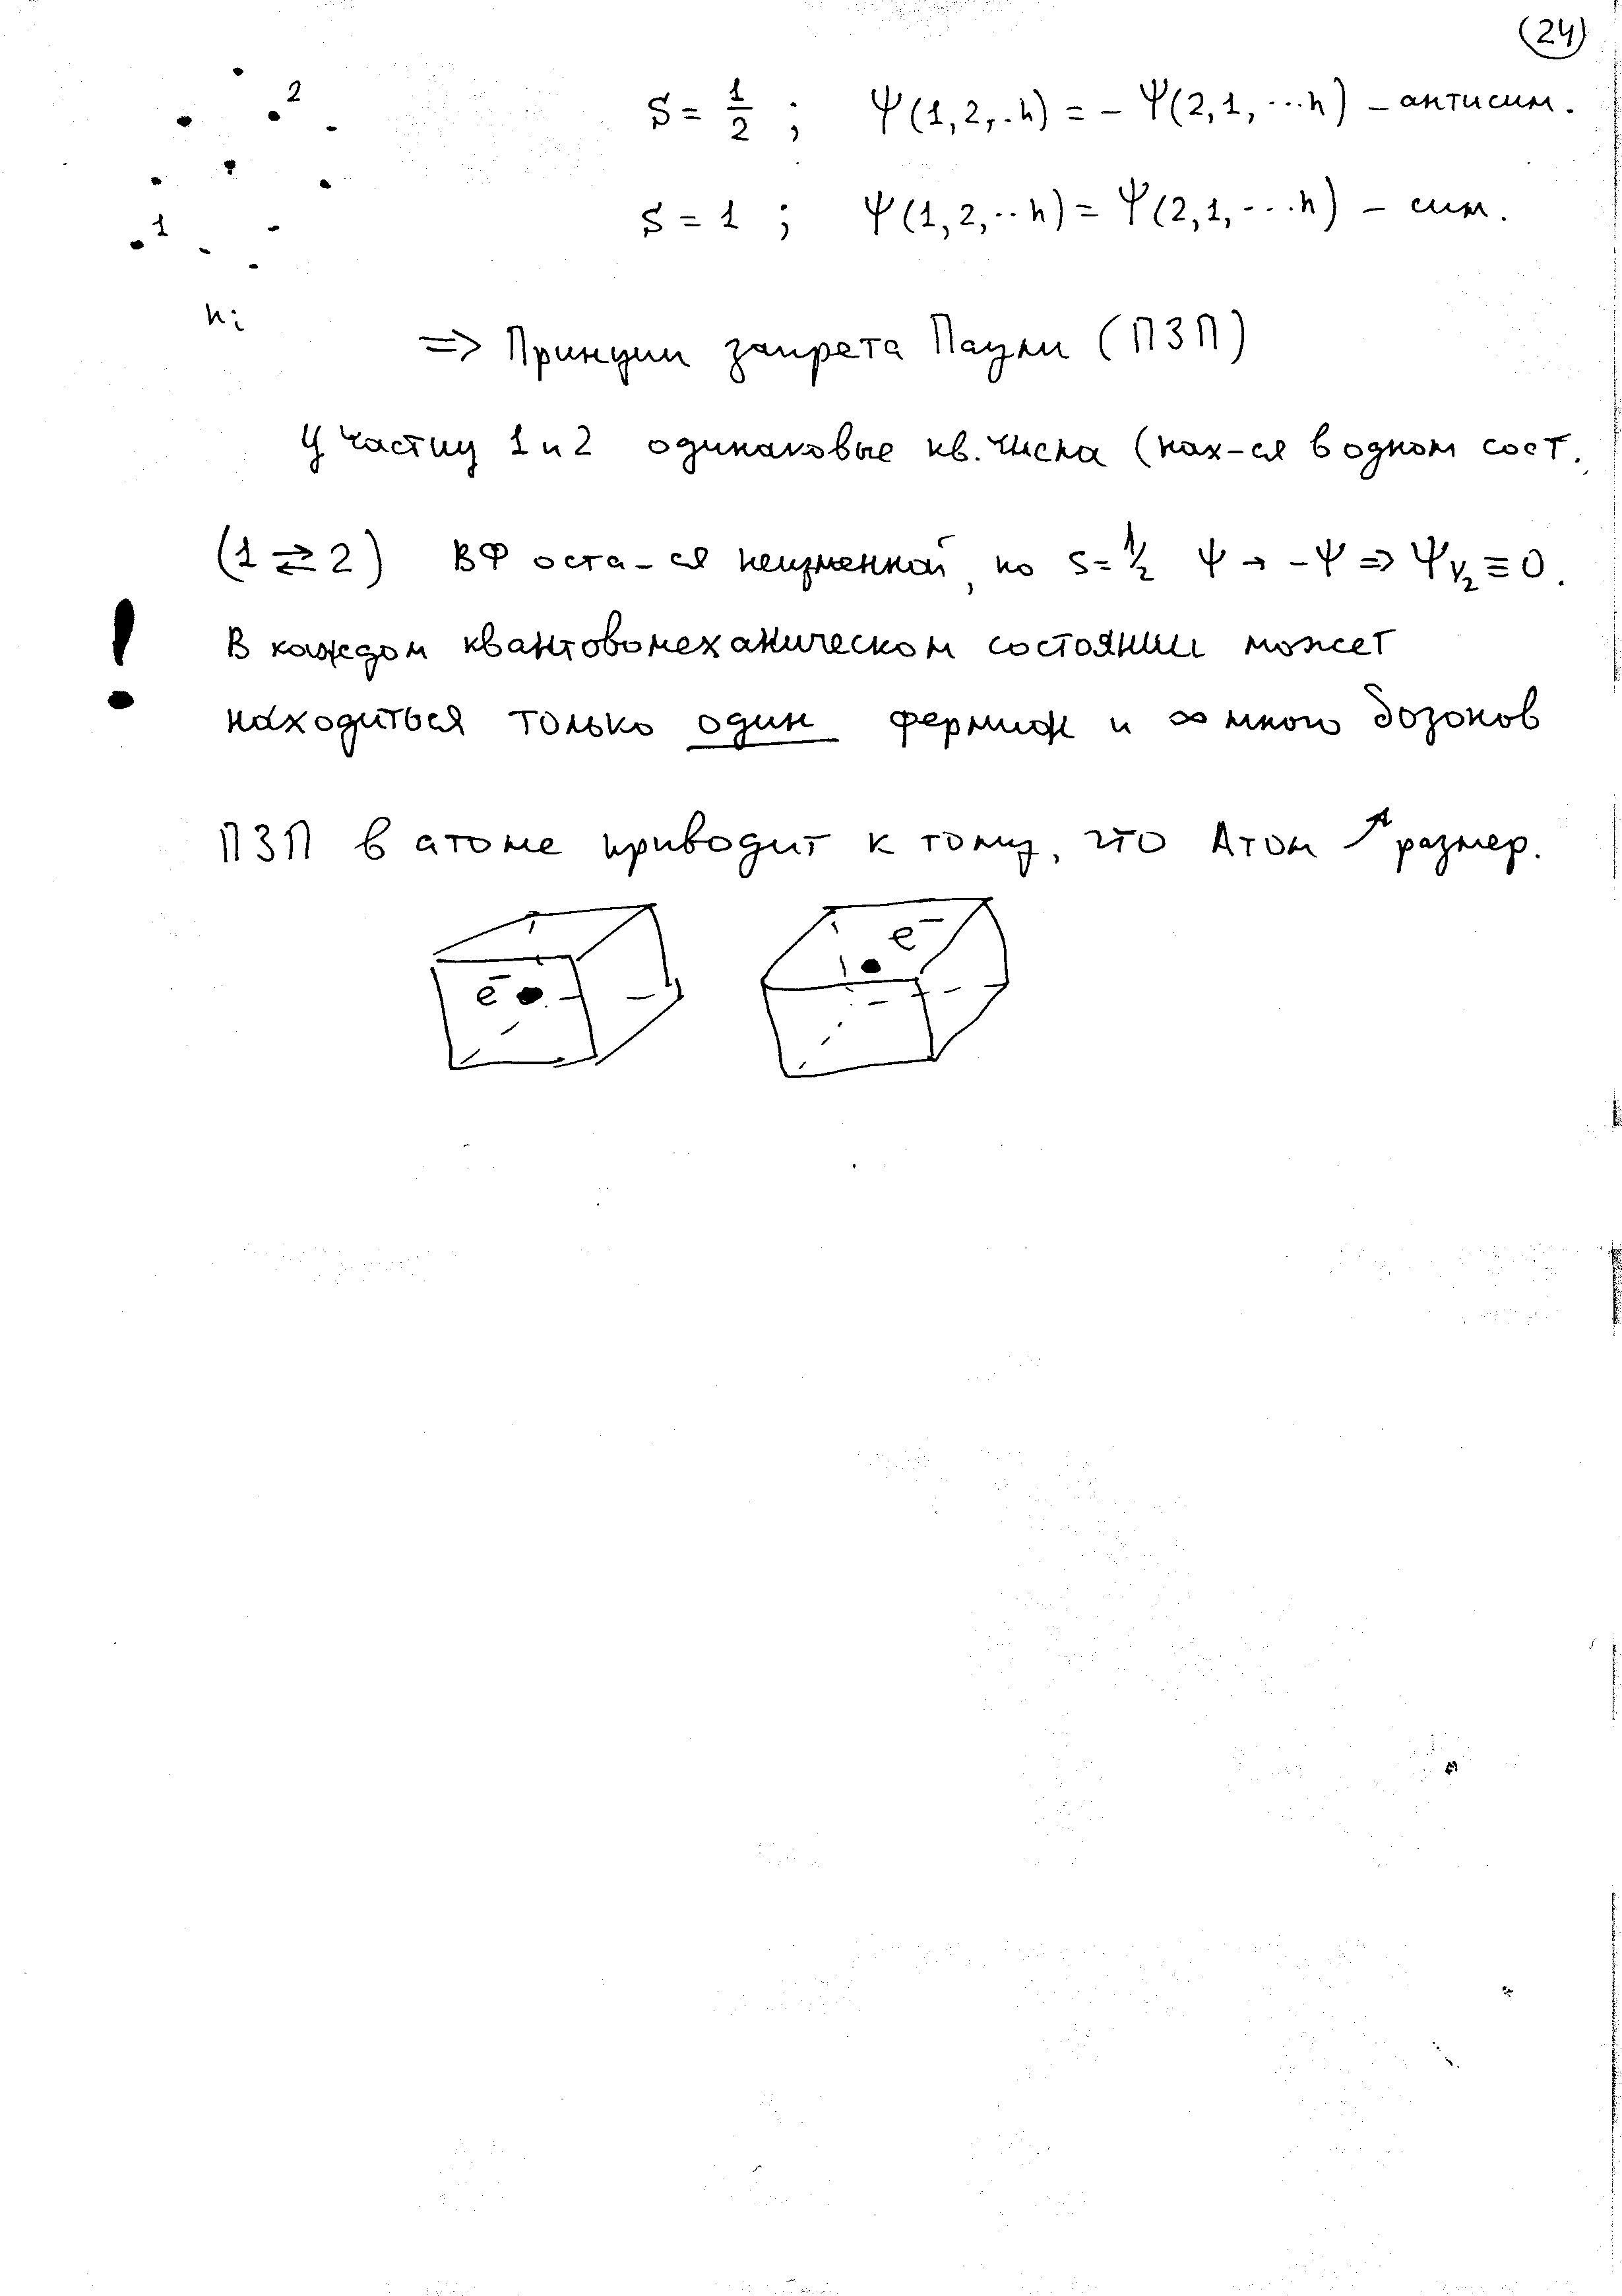 (24)
2
S = 1/2 ; Ψ(1,2,..n) = - Ψ(2,1,...n) - антисим.
1
S = 1 ; Ψ(1,2,..n) = Ψ(2,1,...n) - сим.
n;
=> Принцип запрета Паули (ПЗП)
У частиц 1 и 2 одинаковые кв. числа (нах-ся в одном сост.
(1 ⇄ 2) ВФ оста-ся неизменной, но s = 1/2 Ψ → -Ψ => Ψ1/2 ≡ 0.
! В каждом квантовомеханическом состоянии может
находиться только один фермион и ∞ много бозонов
ПЗП в атоме приводит к тому, что Атом ↑ размер.
e⁻ e⁻